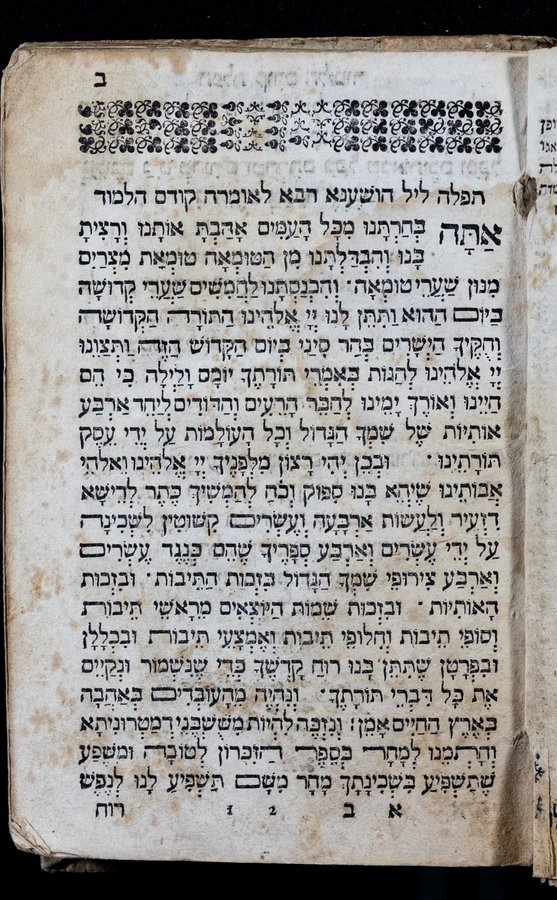 ב
תפלה ליל הושענא רבא לאומרה קודם הלמוד
אַתָּה בְּחַרְתָּנוּ מִכָּל הָעַמִּים אָהַבְתָּ אוֹתָנוּ וְרָצִיתָ
בָּנוּ וְהִבְדַּלְתָּנוּ מִן הַטּוּמְאָה טוּמְאַת מִצְרַיִם
מִנּוּן שַׁעֲרֵי טוּמְאָה׃ וְהִכְנַסְתָּנוּ לַחֲמִשִּׁים שַׁעֲרֵי קְדוּשָׁה
בַּיּוֹם הַהוּא וַתִּתֵּן לָנוּ יְיָ אֱלֹהֵינוּ הַתּוֹרָה הַקְּדוֹשָׁה
וְחֻקֶּיךָ הַיְשָׁרִים בְּהַר סִינַי בְּיוֹם הַקָּדוֹשׁ הַזֶּה וַתְּצַוֵּנוּ
יְיָ אֱלֹהֵינוּ לַהֲגוֹת בְּאִמְרֵי תּוֹרָתֶךָ יוֹמָם וָלַיְלָה כִּי הֵם
חַיֵּינוּ וְאוֹרֶךְ יָמֵינוּ לְחַבֵּר הָרֵעִים וְהַדּוֹדִים לְיַחֵד אַרְבַּע
אוֹתִיּוֹת שֶׁל שִׁמְךָ הַגָּדוֹל וְכָל הָעוֹלָמוֹת עַל יְדֵי עֵסֶק
תּוֹרָתֵינוּ ׃ וּבְכֵן יְהִי רָצוֹן מִלְּפָנֶיךָ יְיָ אֱלֹהֵינוּ וֵאלֹהֵי
אֲבוֹתֵינוּ שֶׁיְּהֵא בָּנוּ סִפּוּק וְכֹחַ לְהַמְשִׁיךְ כֶּתֶר לְרֵישָׁא
דִּזְעֵיר וְלַעֲשׂוֹת אַרְבָּעָה וְעֶשְׂרִים קִשּׁוּטִין לַשְּׁכִינָה
עַל יְדֵי עֶשְׂרִים וְאַרְבַּע סְפָרֶיךָ שֶׁהֵם כְּנֶגֶד עֶשְׂרִים
וְאַרְבַּע צֵירוּפֵי שִׁמְךָ הַגָּדוֹל בִּזְכוּת הַתֵּיבוֹת ׃ וּבִזְכוּת
הָאוֹתִיּוֹת ׃ וּבִזְכוּת שֵׁמוֹת הַיּוֹצְאִים מֵרָאשֵׁי תֵּיבוֹת
וְסוֹפֵי תֵּיבוֹת וְחִלּוּפֵי תֵּיבוֹת וְאֶמְצָעֵי תֵּיבוֹת וּבִכְלָלָן
וּבִפְרָטָן שֶׁתִּתֵּן בָּנוּ רוּחַ קָדְשֶׁךָ כְּדֵי שֶׁנִּשְׁמוֹר וּנְקַיֵּים
אֶת כָּל דִּבְרֵי תּוֹרָתֶךָ ׃ וְנִהְיֶה מֵהָעוֹבְדִים בְּאַהֲבָה
בְּאֶרֶץ הַחַיִּים אָמֵן׃ וְנִזְכֶּה לִהְיוֹת מִשֻּׁשְׁבִּינֵי דְמַטְרוֹנִיתָא
וְחָתְמֵנוּ לְמָחָר בְּסֵפֶר הַזִּכָּרוֹן לְטוֹבָה וּמִשֶּׁפַע
שֶׁתַּשְׁפִּיעַ בִּשְׁכִינָתְךָ מָחָר מִשָּׁם תַּשְׁפִּיעַ לָנוּ לְנֶפֶשׁ
א ב 12 רוח